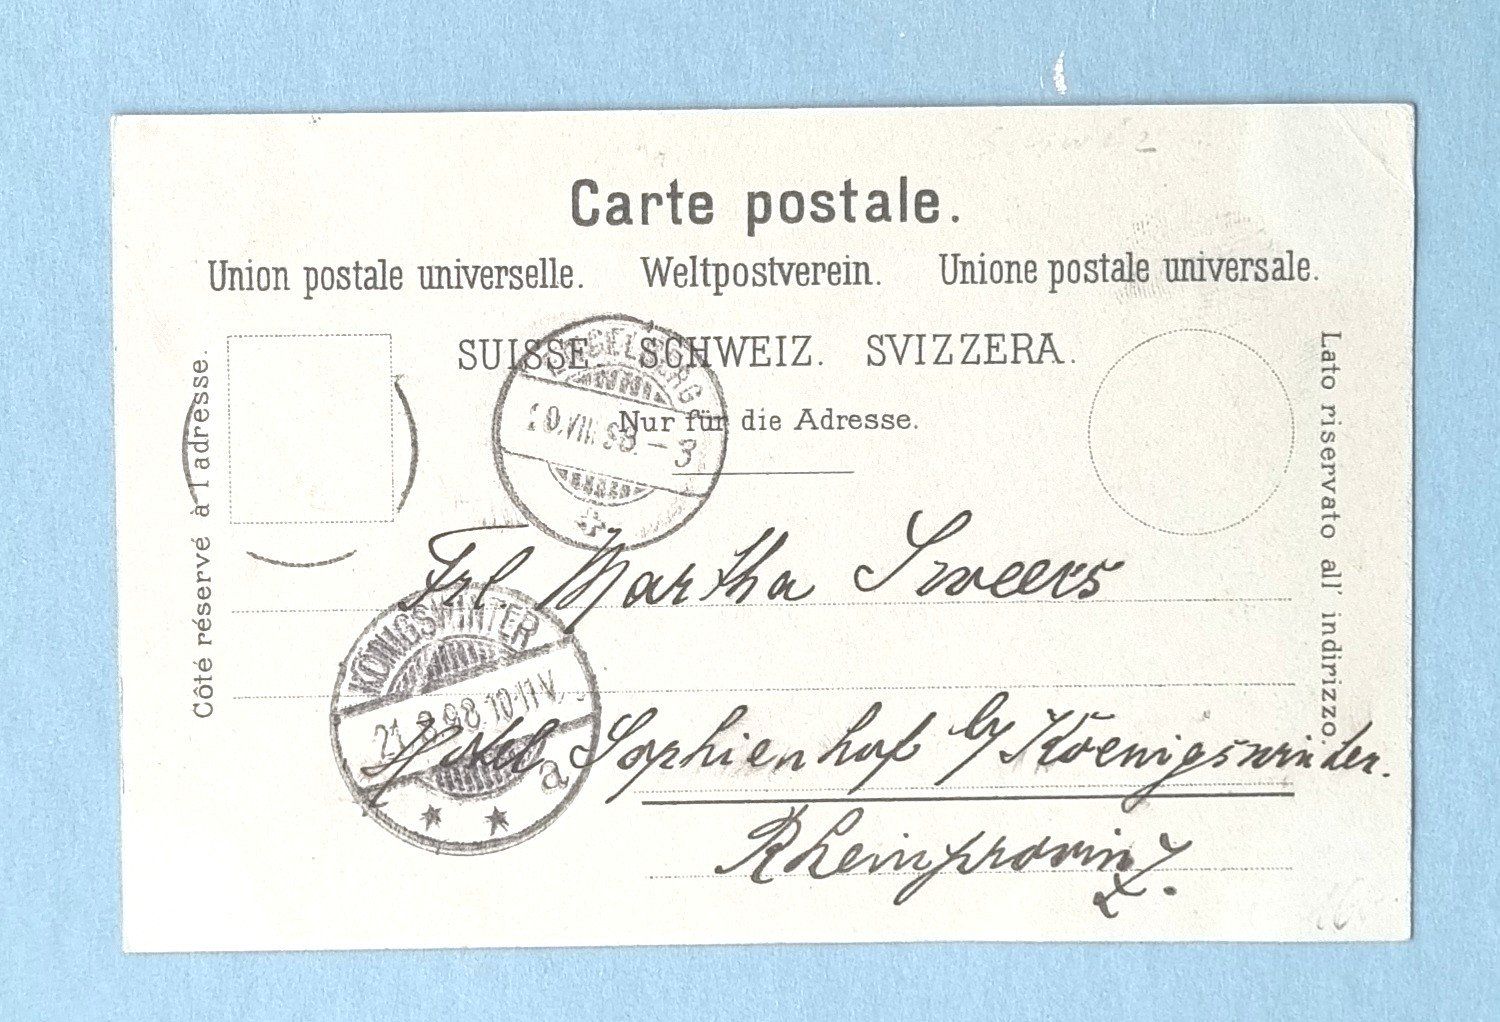 Carte postale.
Union postale universelle. Weltpostverein. Unione postale universale.
SUISSE. SCHWEIZ. SVIZZERA.
Nur für die Adresse.
Côté réservé à l'adresse.
Lato riservato all' indirizzo.
ENGELBERG
VIII 98. - 3
Frl. Martha
KÖNIGSWINTER
21.8.98.10-11V.
a
Hotel Sophienhof b/ Koenigswinter.
Rheinprovinz.